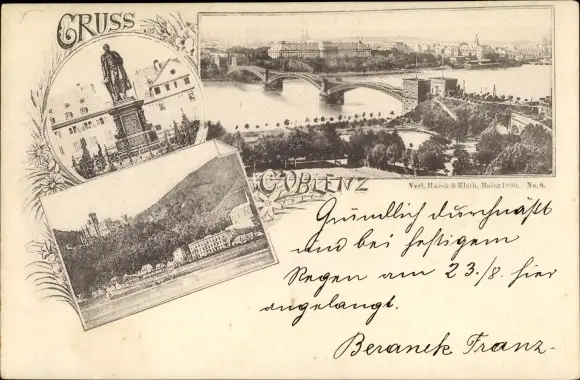 GRUSS
COBLENZ
Verl. Hasek & Kluth, Mainz 1890. No. 8.
Gründlich durchnäßt
und bei heftigem
Regen am 23./8. hier
angelangt.
Beranek Franz.